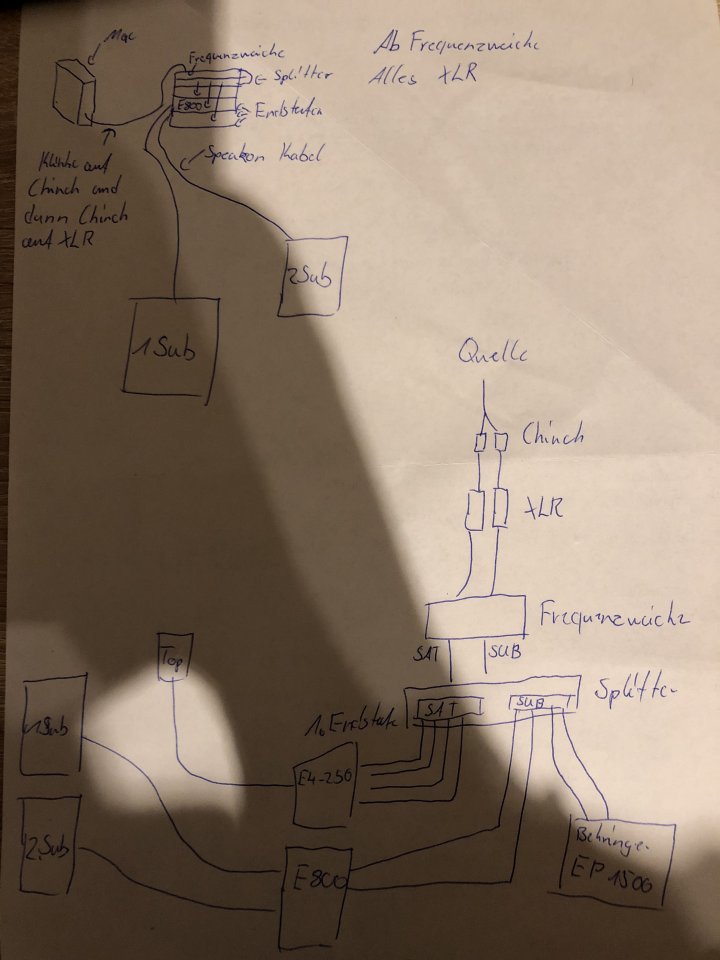 Mac
Frequenzweiche
Splitter
E800
Endstufen
Ab Frequenzweiche
Alles XLR
Klinke auf
Chinch und
dann Chinch
auf XLR
Speakon Kabel
2Sub
1Sub
Quelle
Chinch
XLR
Frequenzweiche
SAT
SUB
Splitter
SAT
SUB
1. Endstufe
Top
1Sub
E4-250
2.Sub
E800
Behringer
EP 1500